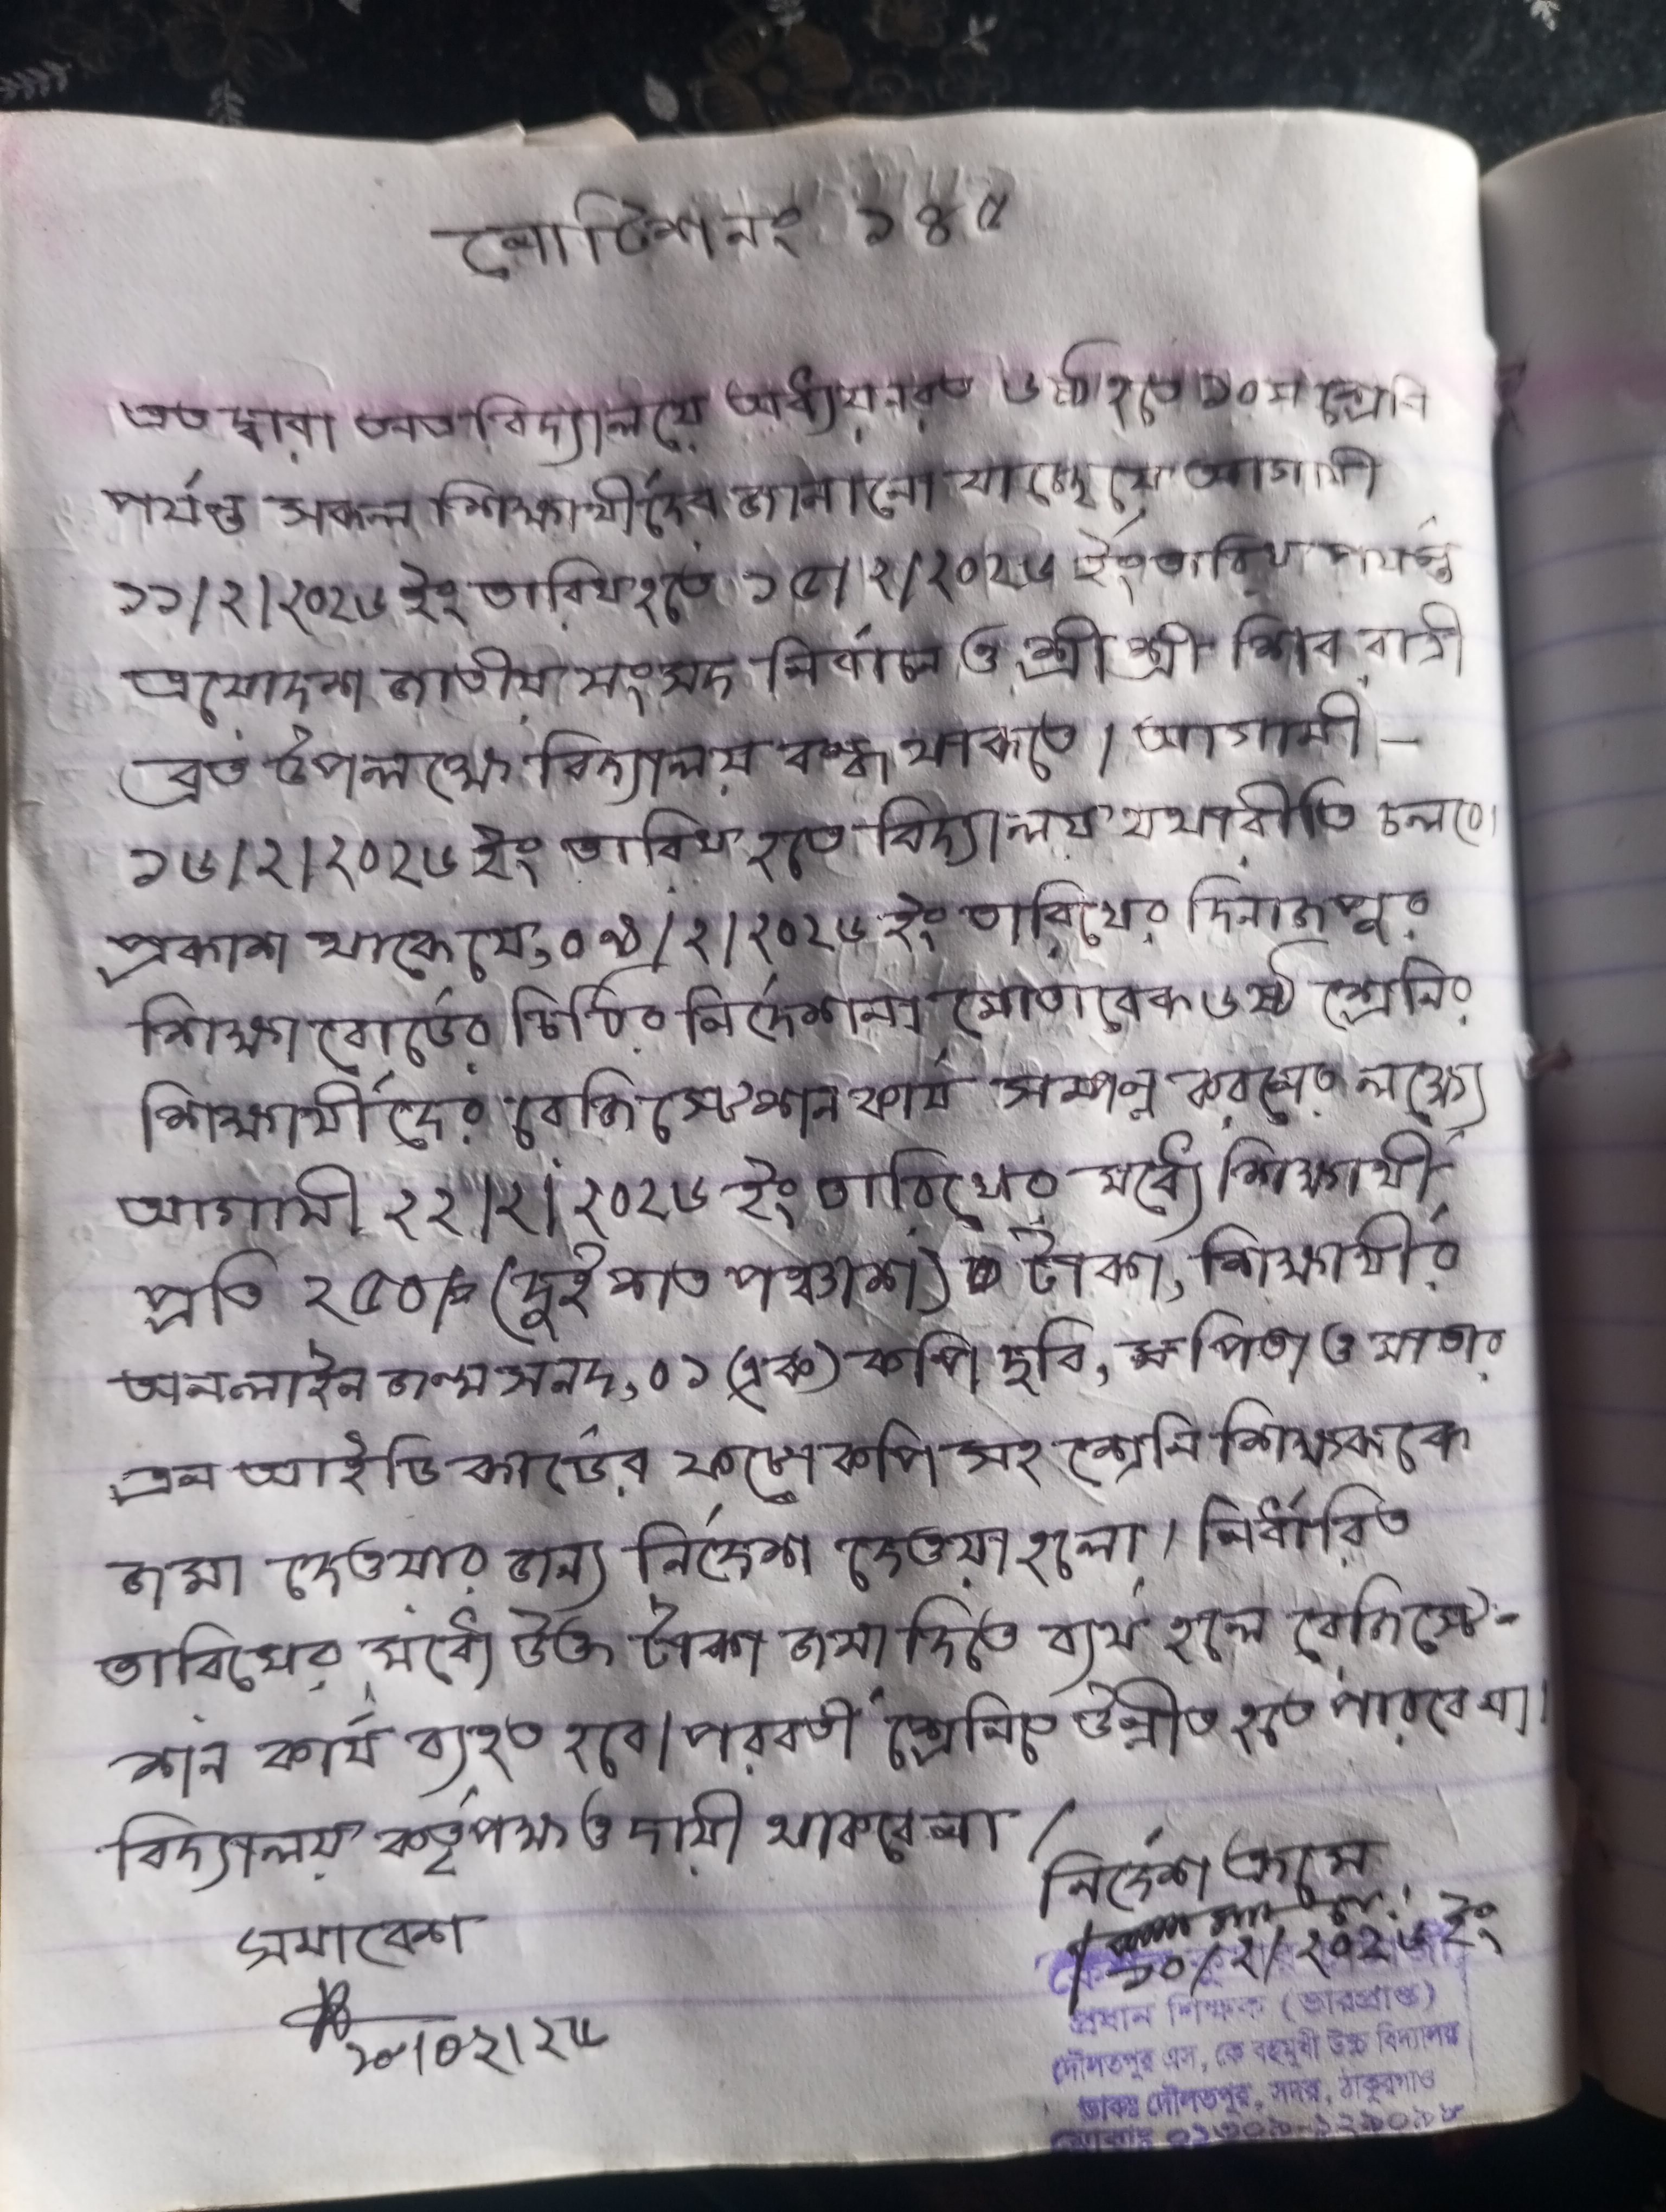 নোটিশ নং ১৪৫
এত দ্বারা অত্র বিদ্যালয়ে অধ্যয়নরত ৬ষ্ঠ হতে ১০ম শ্রেনি
পর্যন্ত সকল শিক্ষার্থীদের জানানো যাচ্ছে যে আগামী
১১/২/২০২৬ ইং তারিখ হতে ১৫/২/২০২৬ ইং তারিখ পর্যন্ত
ত্রয়োদশ জাতীয় সংসদ নির্বাচন ও শ্রী শ্রী শিব রাত্রী
ব্রত উপলক্ষে বিদ্যালয় বন্ধ থাকবে। আগামী –
১৬/২/২০২৬ ইং তারিখ হতে বিদ্যালয় যথারীতি চলবে।
প্রকাশ থাকে যে, ০৯/২/২০২৬ ইং তারিখের দিনাজপুর
শিক্ষা বোর্ডের চিঠির নির্দেশনা মোতাবেক ৬ষ্ঠ শ্রেনির
শিক্ষার্থীদের রেজিস্ট্রেশান কার্য সম্পন্ন করনের লক্ষ্যে
আগামী ২২/২/২০২৬ ইং তারিখের মর্ধ্যে শিক্ষার্থী
প্রতি ২৫০/= (দুই শত পঞ্চাশ) টাকা, শিক্ষার্থীর
অনলাইন জন্ম সনদ, ০১ (এক) কপি ছবি, পিতা ও মাতার
এন আইডি কার্ডের ফটো কপি সহ শ্রেনি শিক্ষককে
জমা দেওয়ার জন্য নির্দেশ দেওয়া হলো। নির্ধারিত
তারিখের মর্ধ্যে উক্ত টাকা জমা দিতে ব্যর্থ হলে রেজিস্ট্রে-
শান কার্য ব্যহত হবে। পরবর্তী শ্রেনিতে উন্নীত হতে পারবে না।
বিদ্যালয় কর্তৃপক্ষ ও দায়ী থাকবে না।
নির্দেশ ক্রমে
সমাবেশ
১০/২/২০২৬ ইং
১০/০২/২৬
প্রধান শিক্ষক (ভারপ্রাপ্ত)
দৌলতপুর এস, কে বহুমুখী উচ্চ বিদ্যালয়
ডাকঃ দৌলতপুর, সদর, ঠাকুরগাঁও